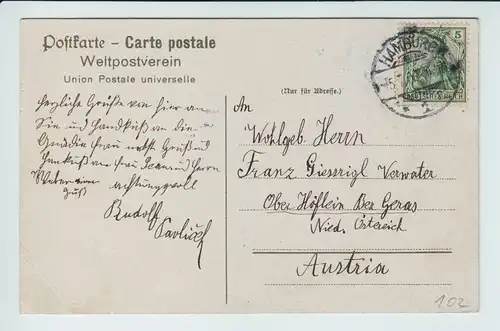 Postkarte – Carte postale
Weltpostverein
Union Postale universelle
(Nur für Adresse.)
HAMBURG
5
DEUTSCHES REICH
herzliche Grüße von hier an
Sie und Handkuß an die
Gnädige Frau nebst Gruß und
Handkuß an Frau und Herrn
achtungsvoll
Rudolf
An
Wohlgeb. Herrn
Franz Giessrigl Verwater
Ober Höflein Bez Geras
Nied. Östereich
Austria
102